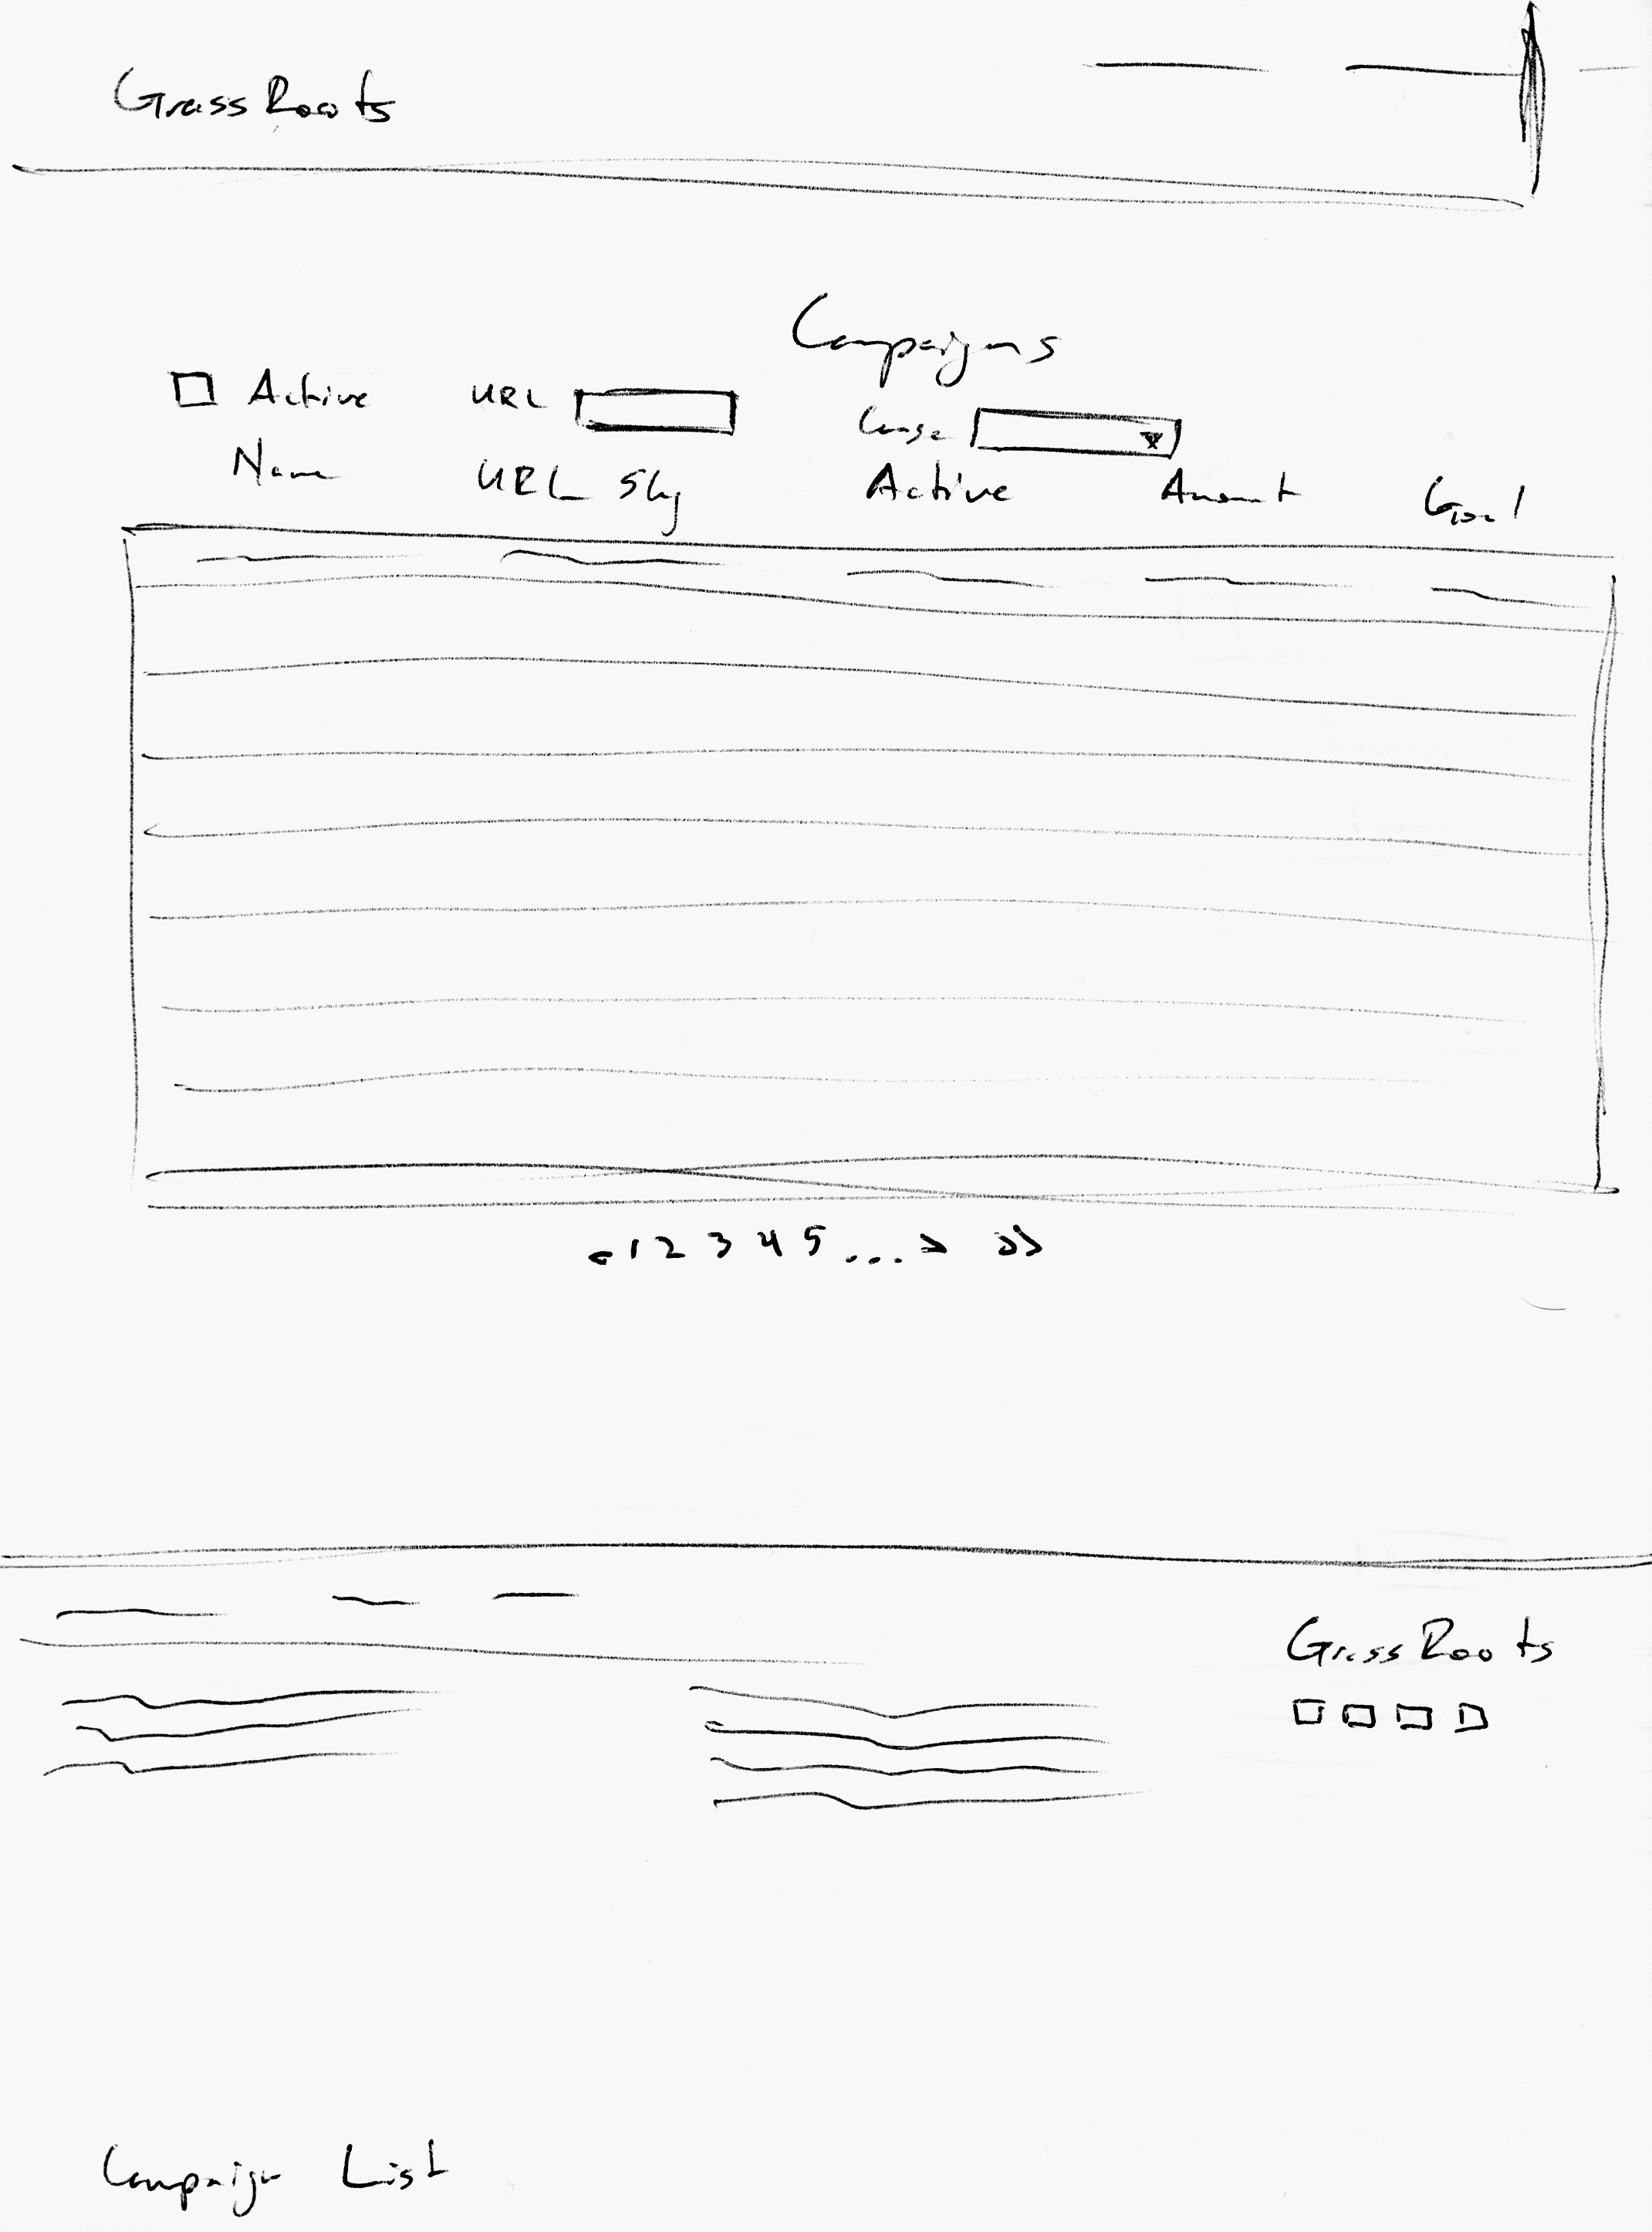 GrassRoots
Campaigns
Active URL Cause
Name URL Slug Active Amount Goal
< 1 2 3 4 5 ... > >>
GrassRoots
Campaign List